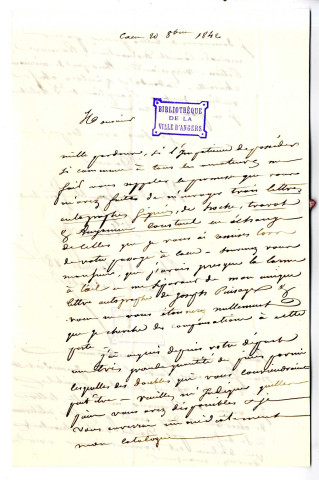 Caen 20 8bre 1842
BIBLIOTHÈQUE
DE LA
VILLE D'ANGERS
Monsieur
mille pardons, si l'impatience de posséder
si commune à tous les amateurs me
fait vous rappeler la promesse que vous
m'avez faite de m'envoyer trois lettres
autographes signées, de Hoche, travot
& Benjamin Constant en échange
de celles que je vous ai remises lors
de votre passage à Caen - souvenez vous
monsieur, que j'avais presque la larme
à l'œil en me séparant de mon unique
lettre autographe de Puisaye &
vous ne vous étonnerez nullement
que je cherche des compensations à cette
perte.
J'ai acquis depuis votre départ
une très grande quantité de pièces parmi
lesquelles des doubles qui vous conviendraient
peut être - veuillez m'indiquer quelles
pièces vous avez disponibles & je
vous enverrai immédiatement
mon catalogue